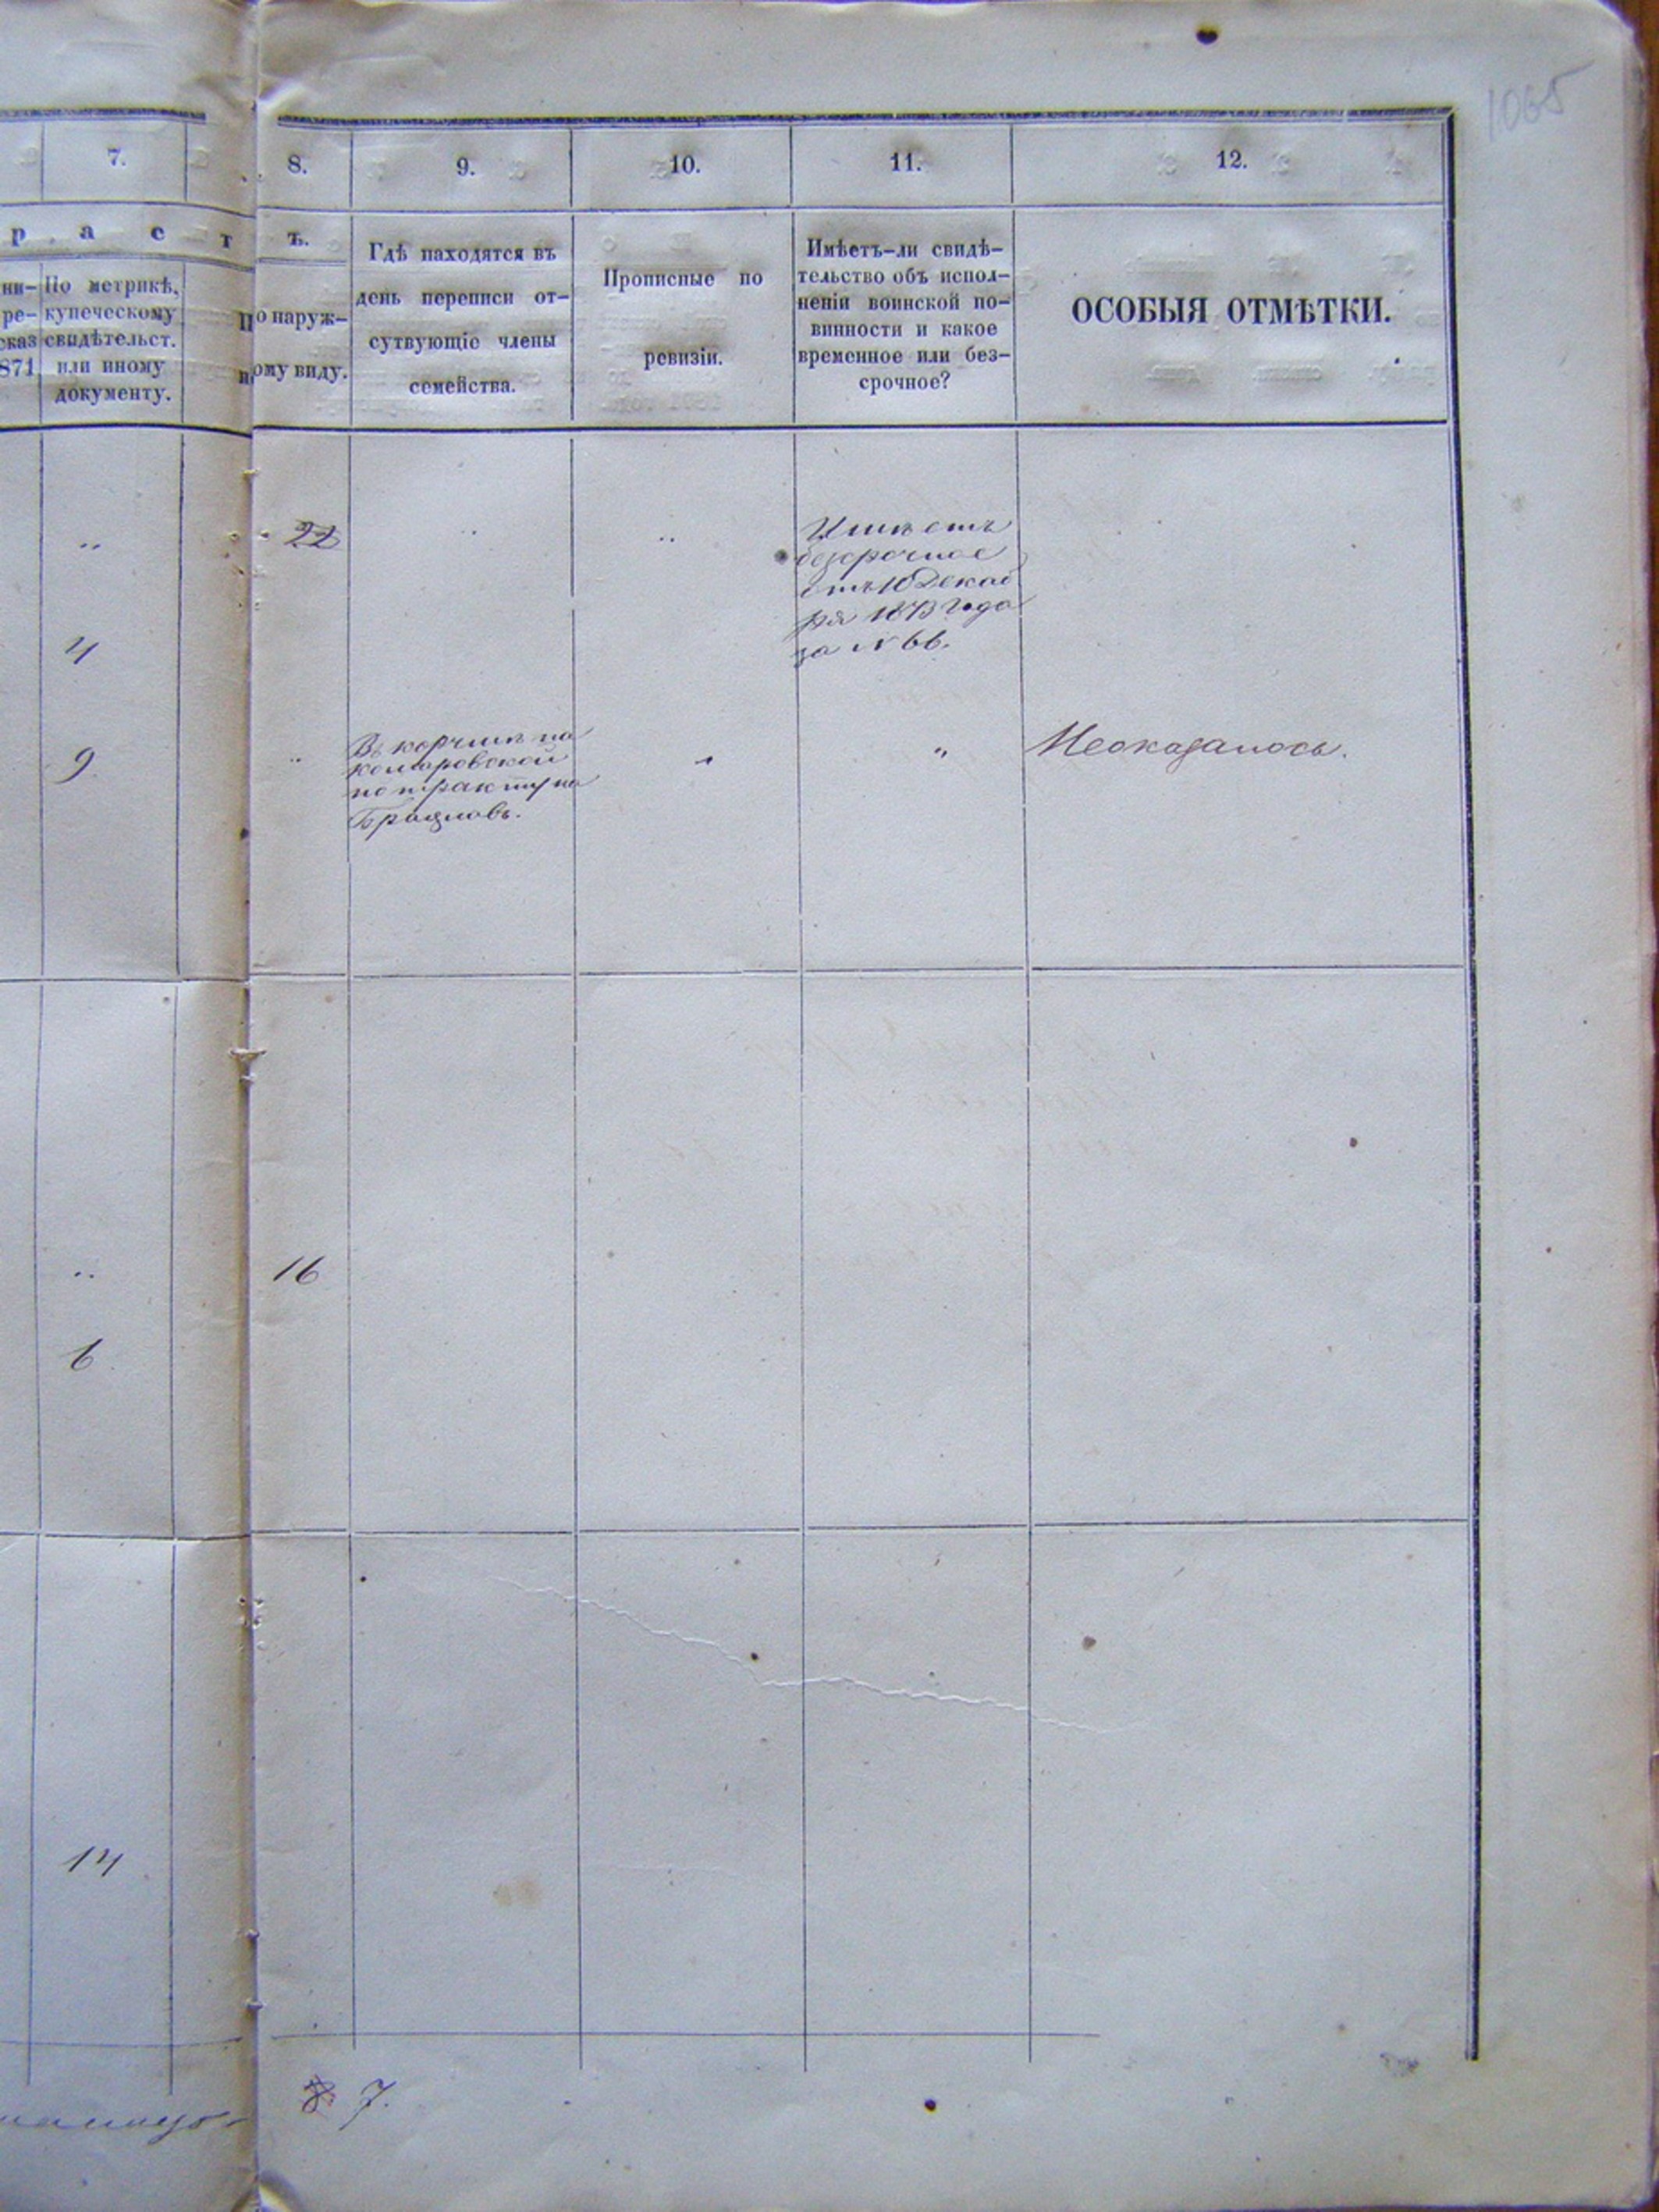 1065
7.
8.
9.
10.
11.
12.
р а с т
ъ.
ни-
ре-
сказ
871
По метрикѣ,
купеческому
свидѣтельст.
или иному
документу.
По наруж-
ному виду.
Гдѣ находятся въ
день переписи от-
сутвующіе члены
семейства.
Прописные по
ревизіи.
Имѣетъ-ли свидѣ-
тельство объ испол-
неніи воинской по-
винности и какое
временное или без-
срочное?
ОСОБЫЯ ОТМѢТКИ.
"
22
"
"
Имѣетъ
безсрочное
отъ 10 Декаб
ря 1873 года
за № 66.
4
9
"
Въ корчмѣ на
комаровской
по тракту на
Брацлавъ.
"
"
Неоказалось.
"
16
6
14
8 7.